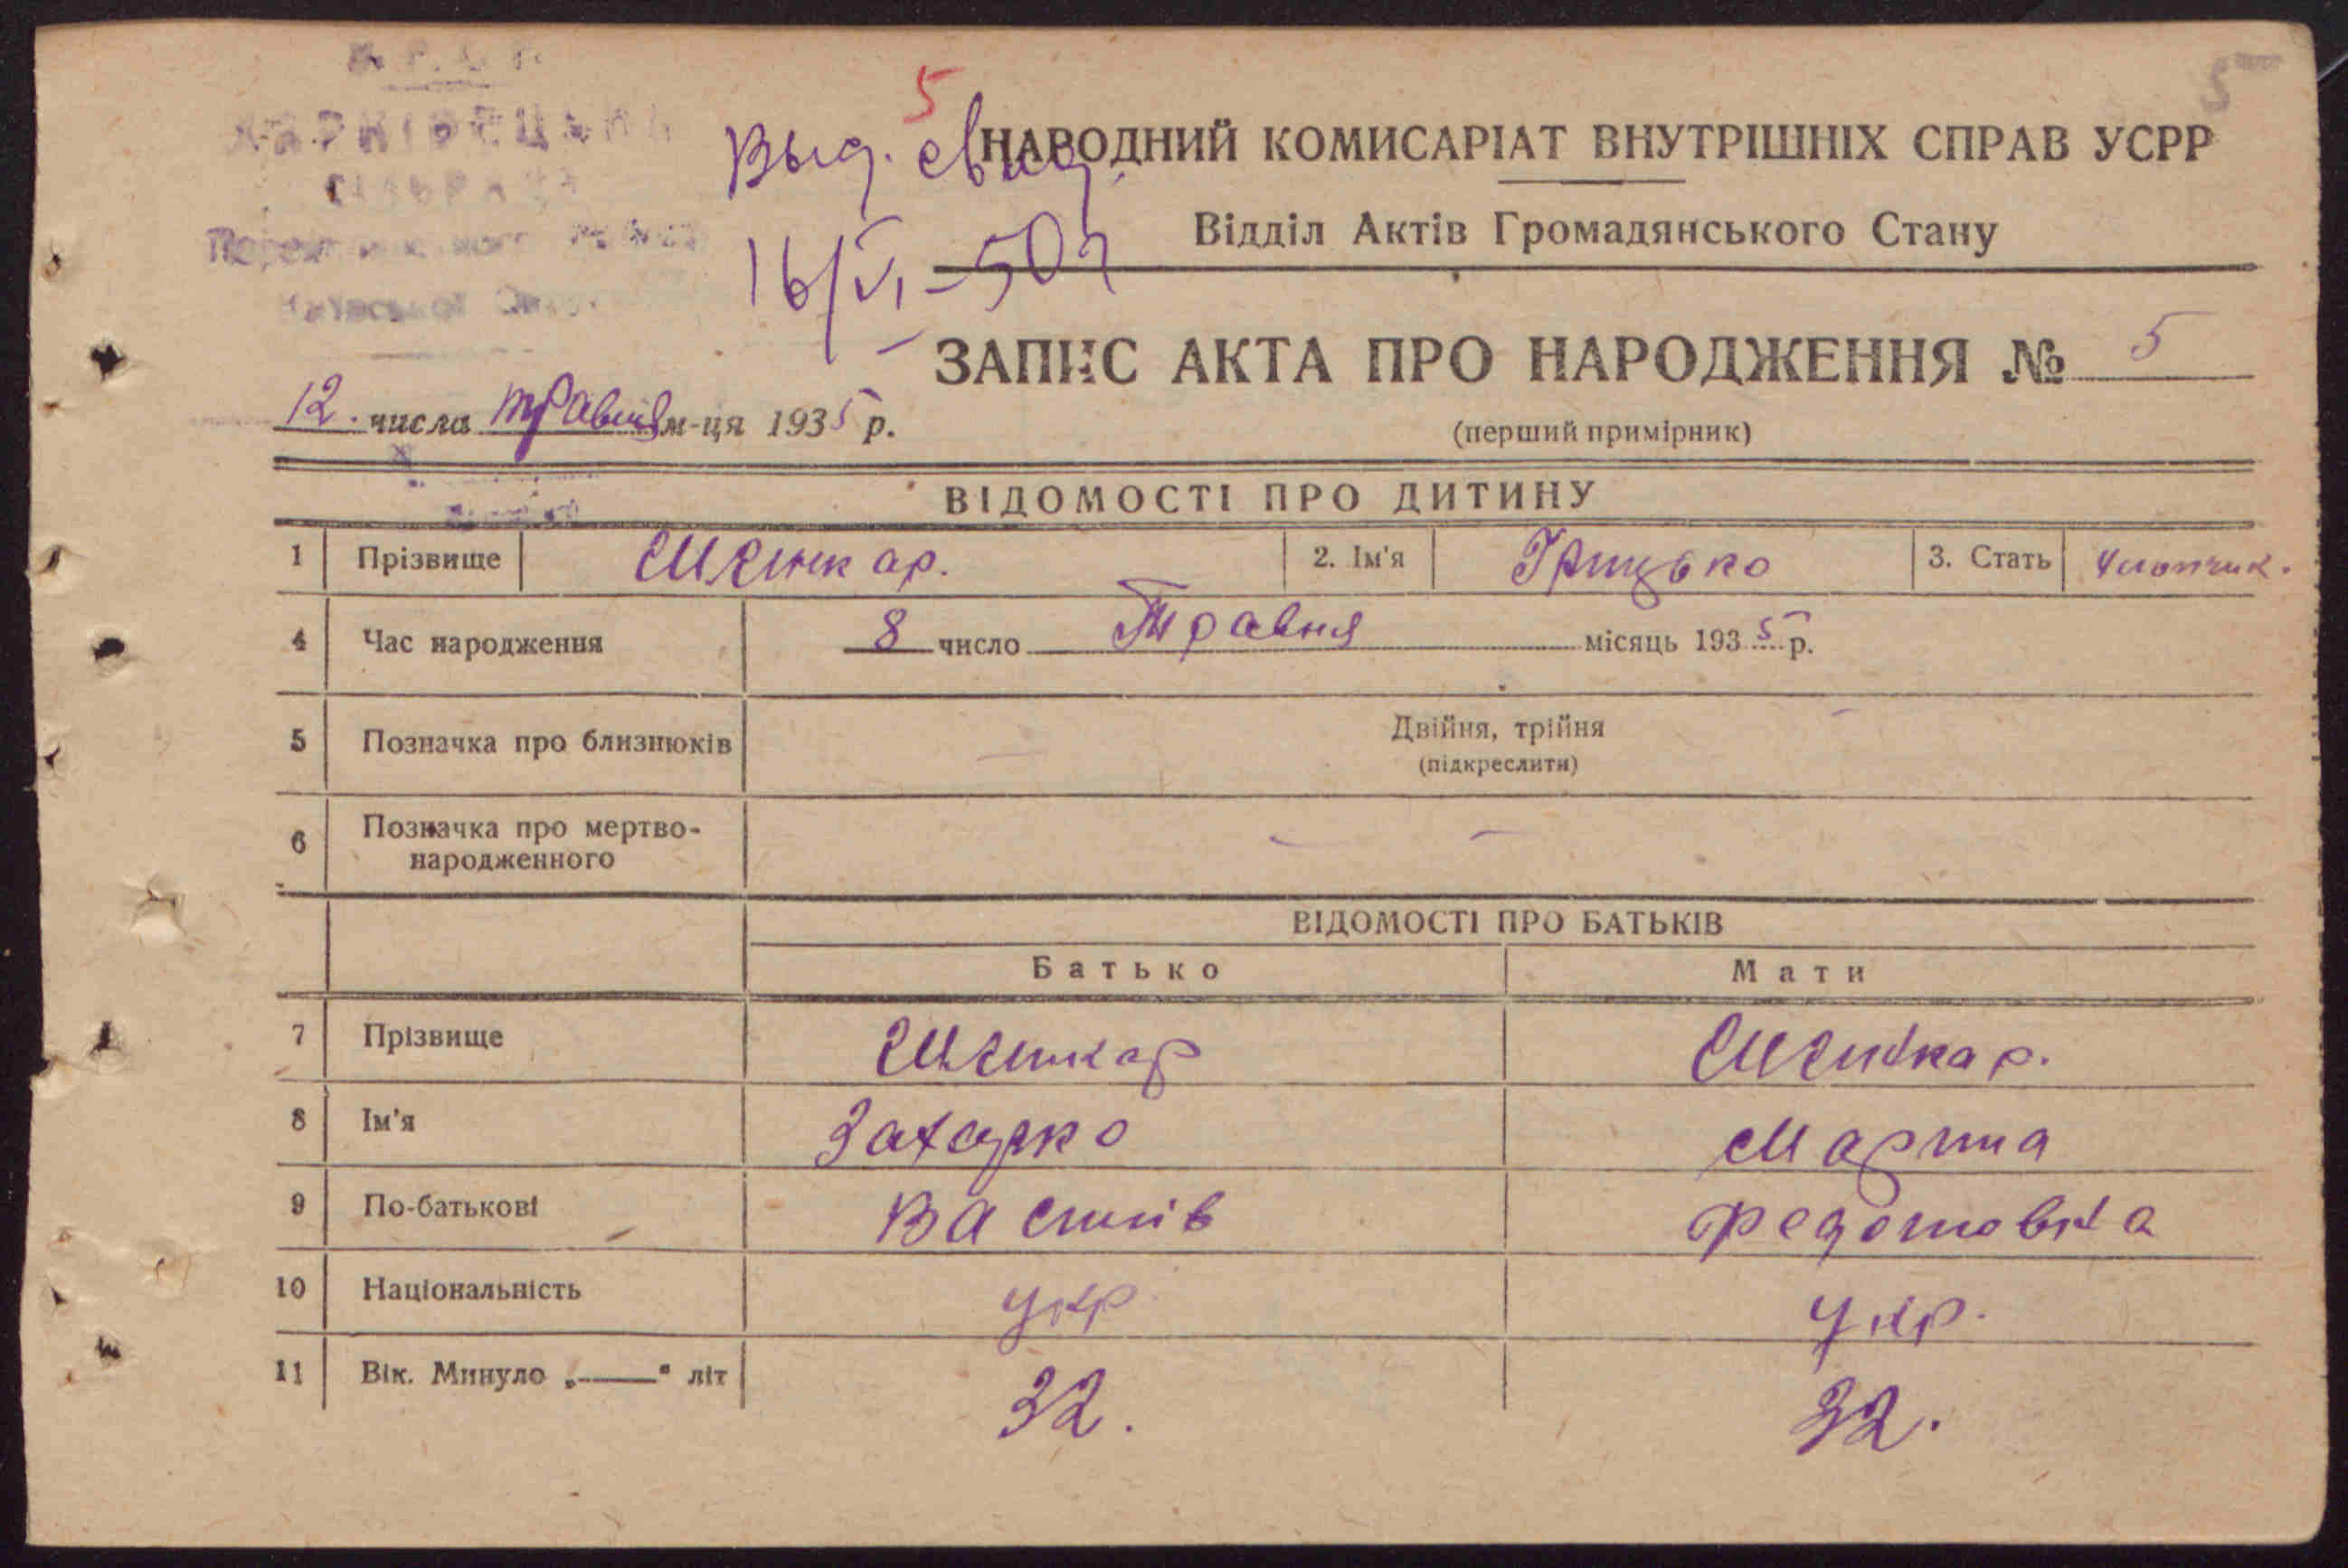 У.С.Р.Р.
ХАРКІВЕЦЬКА
СІЛЬРАДА
Київської
5
5
Выд. свид.
16/VI-50г
НАРОДНИЙ КОМИСАРІАТ ВНУТРІШНІХ СПРАВ УСРР
Відділ Актів Громадянського Стану
ЗАПИС АКТА ПРО НАРОДЖЕННЯ № 5
12. числа травня м-ця 1935 р.
(перший примірник)
ВІДОМОСТІ ПРО ДИТИНУ
1 Прізвище Шинкар. 2. Ім'я Грицько 3. Стать Хлопчик.
4 Час народження 8 число Травня місяць 1935 р.
5 Позначка про близнюків Двійня, трійня
(підкреслити)
6 Позначка про мертво-
народженного
ВІДОМОСТІ ПРО БАТЬКІВ
Батько Мати
7 Прізвище Шинкар Шинкар.
8 Ім'я Захарко Марина
9 По-батькові Василів Федотовна
10 Національність укр укр.
11 Вік. Минуло „——" літ 32. 32.